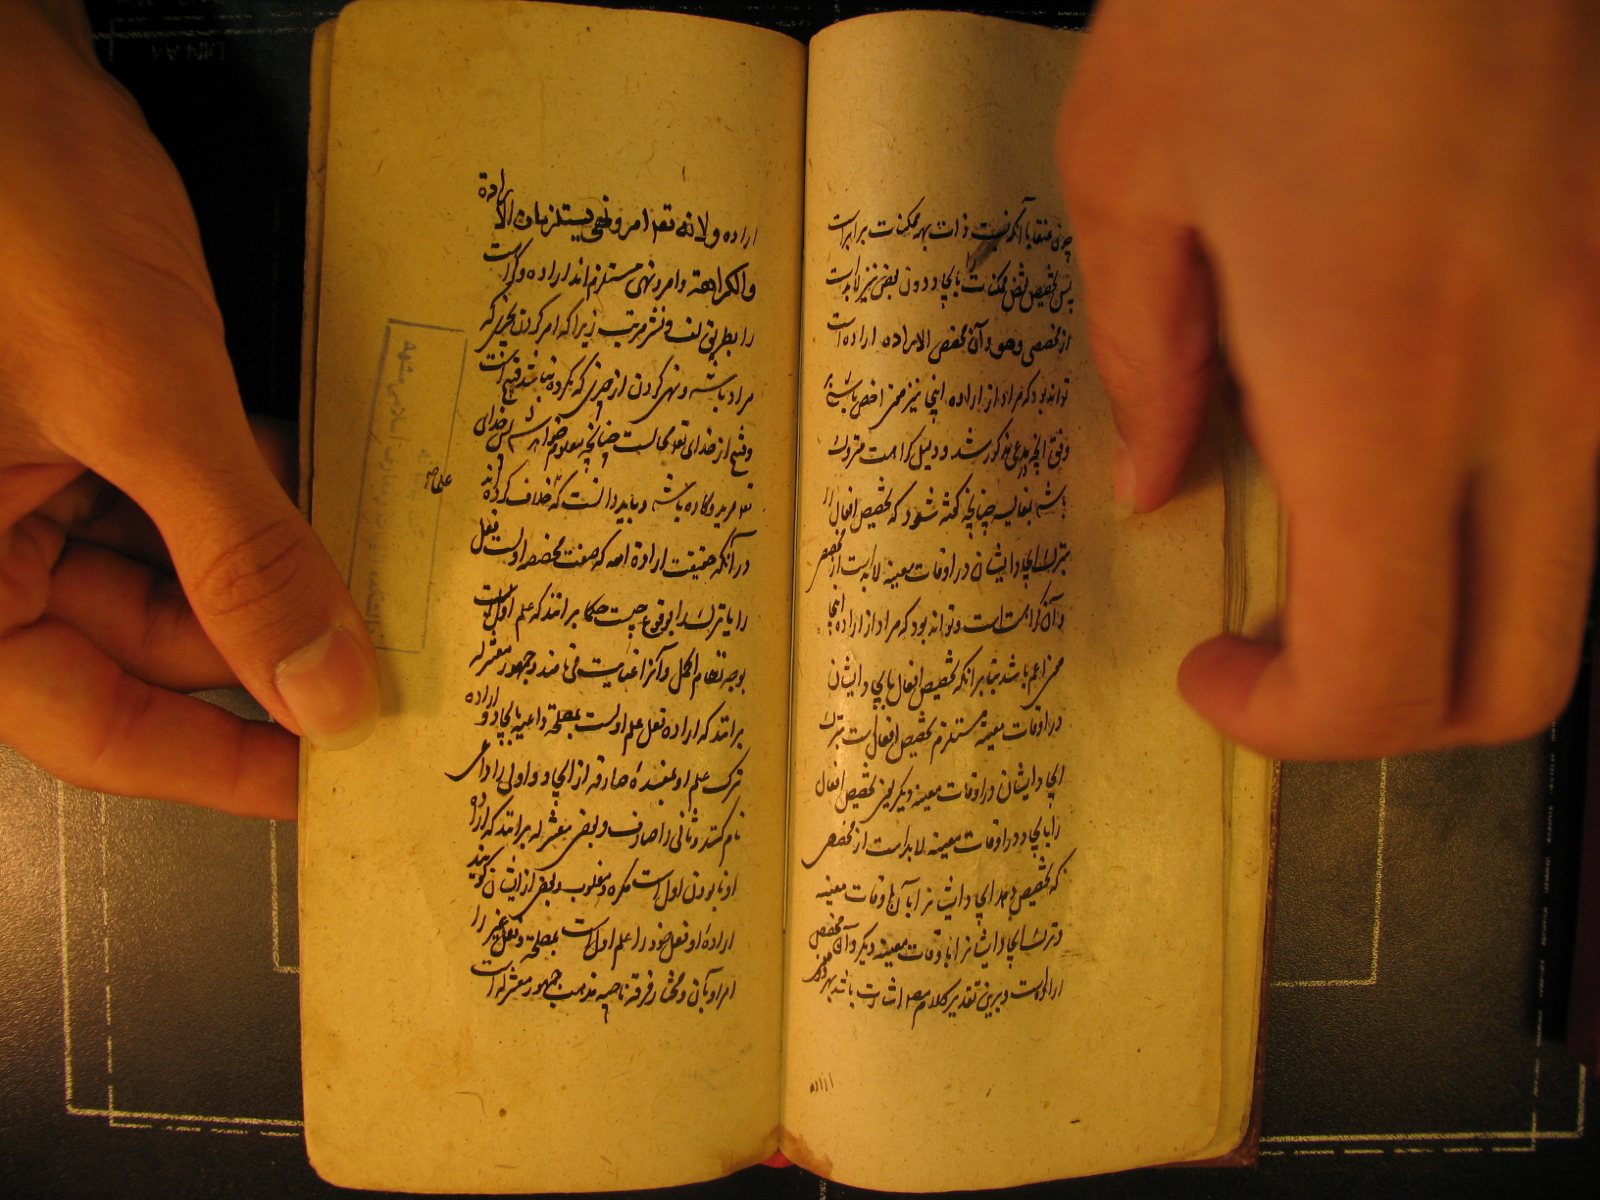 چون عنقا با آنکه نسبت ذات بهمه ممکنات برابر است
پس تخصیص بعض ممکنات را بایجاد دون بعض نیز لابد است
از مخصصی وهو وآن مخصص الاراده اراده است
تواند بود که مراد از اراده اینجا نیز معنی اخص باشد
وفق آنچه در مدعی مذکور شد و دلیل کراهت متروک
باشد بمقایسه چنانچه گفته شود که تخصیص افعال را
بترک ایجاد ایشان در اوقات معینه لابد است از مخصص
وآن کراهت است وتواند بود که مراد از اراده اینجا
معنی اعم باشد بنا برانکه تخصیص افعال بایجاد ایشان
در اوقات معینه مستلزم تخصیص افعال است بترک
ایجاد ایشان در اوقات معینه دیگر یعنی تخصیص افعال
را بایجاد در اوقات معینه لابد است از مخصص
که تخصیص دهد ایجاد ایشانرا بآن اوقات معینه
وترک ایجاد ایشانرا باوقات معینه دیگر وآن مخصص
اراده است وبرین تقدیر کلام مصه اشارت باشد بهر دو معنی
اراده
اراده ولانه تعه امر ونهی یستلزمان الارادة
والکراهة وامر ونهی مستلزم اند اراده وکراهت
را بطریق لف ونشر مرتب زیرا که امر کردن بچیزی که
مراد نباشد ونهی کردن از چیزی که مکروه نباشد قبیح است
وقبیح از خدای تعه محالست چنانچه معلوم خواهد شد پس خدای
تعه مرید وکاره باشد وبباید دانست که خلاف کرده اند
علما
در آنکه حقیقت ارادة الله که صفت مخصصه اوست فعل
را یا ترک را بوقوع چیست حکما برانند که علم اوست
بوجه نظام اکمل وآنرا عنایت می نامند وجمهور معتزله
برانند که اراده فعل علم اوست بمصلحة داعیه بایجاد و اراده
ترک علم او بمفسدهٔ صارفه از ایجاد واولی را داعی
نام کنند وثانی را صارف وبعض معتزله برانند که اراده
او نابودن اوست مکره ومغلوب وبعض از ایشان گویند
ارادهٔ او فعل خود را علم اوست بمصلحة وفعل غیر را
امر او بآن ومختار فرقه ناجیه مذهب جمهور معتزله است